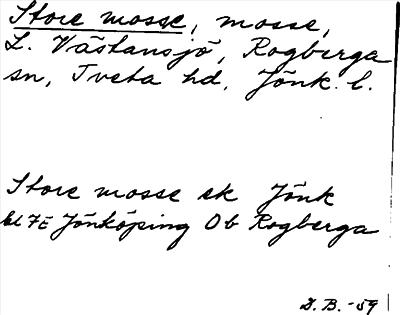 Store mosse, mosse,
L. Västansjö, Rogberga
sn, Tveta hd, Jönk. l.
Store mosse ek Jönk
bl 7E Jönköping Ob Rogberga
D.B. -59